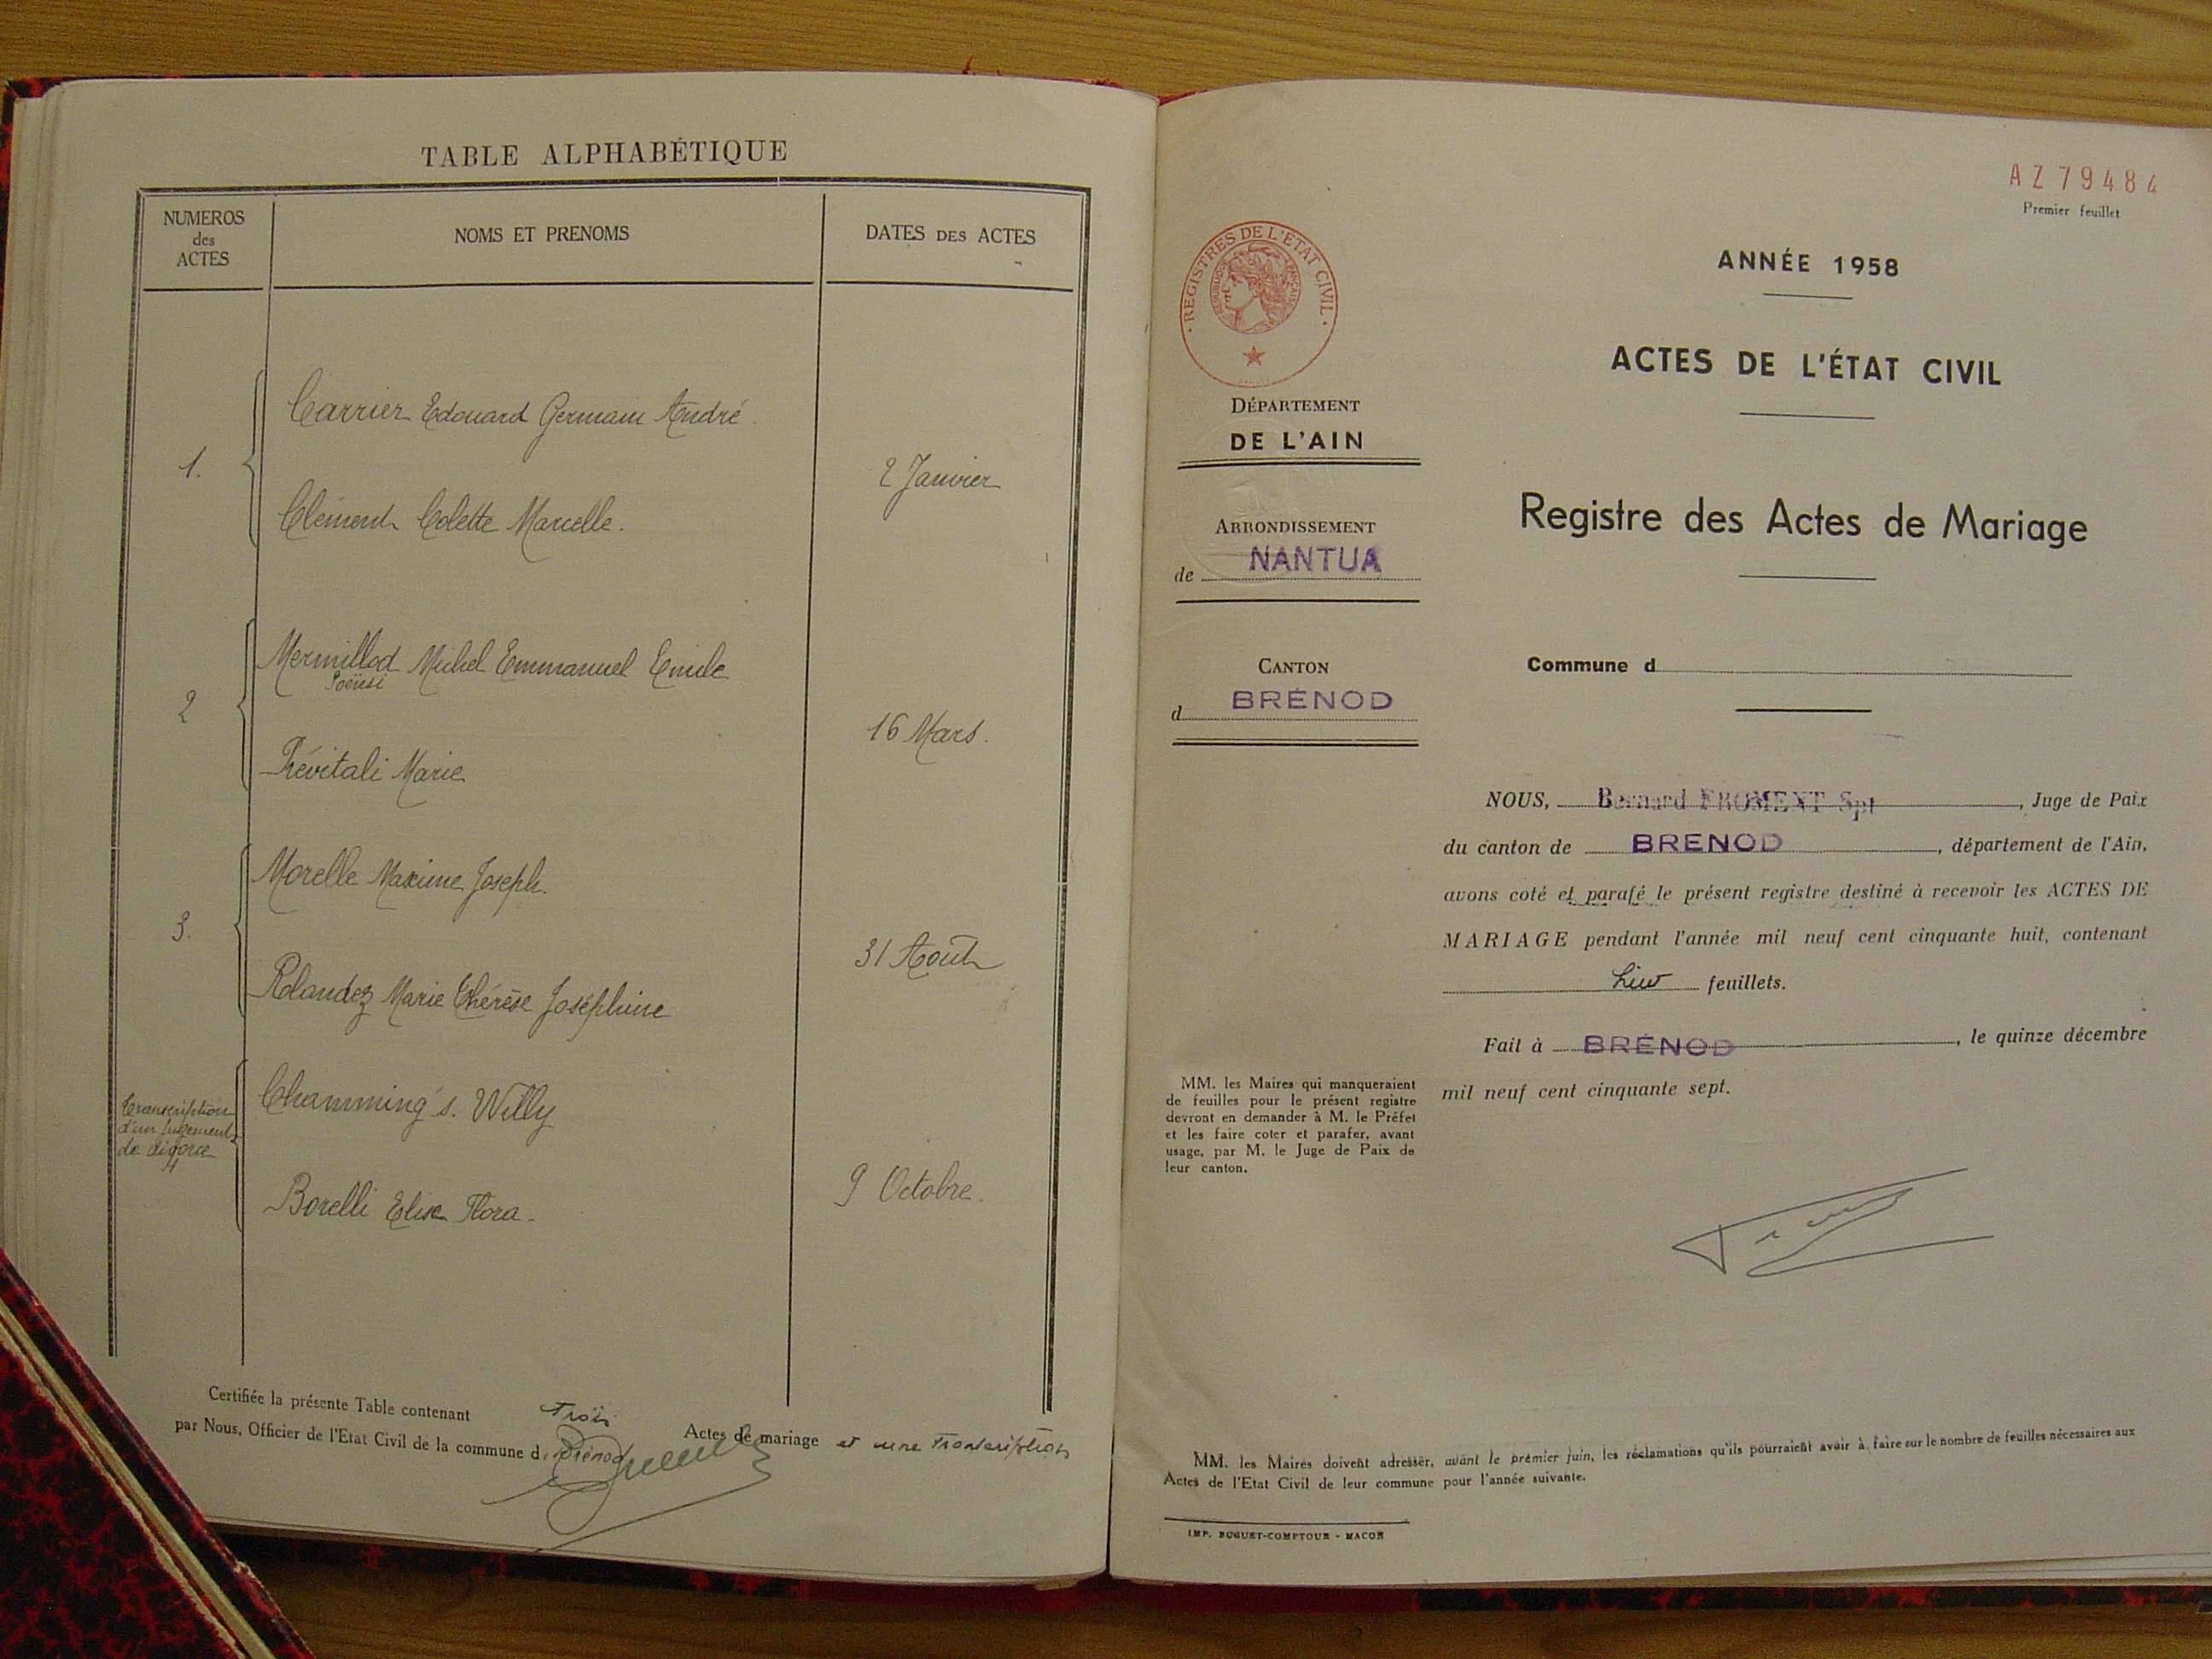 TABLE ALPHABÉTIQUE
NUMEROS
des
ACTES
NOMS ET PRENOMS
DATES DES ACTES
1.
Carrier Edouard Germain André.
Clément Colette Marcelle.
2 Janvier
2
Mermillod Michel Emmanuel Emile
Marie
16 Mars.
3.
Morelle Maxime Joseph.
Rolandez Marie Thérèse Joséphine
31 Août
Transcription
d'un jugement
de divorce
4
Chamming's. Willy
Borelli Elise Flora.
9 Octobre.
Certifiée la présente Table contenant Trois Actes de mariage et une Transcription
par Nous, Officier de l'Etat Civil de la commune d. Brénod
AZ 79484
Premier feuillet
· REGISTRES DE L'ETAT CIVIL ·
REPUBLIQUE FRANÇAISE
DÉPARTEMENT
DE L'AIN
ARRONDISSEMENT
de NANTUA
CANTON
d BRÉNOD
MM. les Maires qui manqueraient
de feuilles pour le présent registre
devront en demander à M. le Préfet
et les faire coter et parafer, avant
usage, par M. le Juge de Paix de
leur canton.
ANNÉE 1958
ACTES DE L'ÉTAT CIVIL
Registre des Actes de Mariage
Commune d
NOUS, Bernard FROMENT Spt, Juge de Paix
du canton de BRENOD, département de l'Ain,
avons coté et parafé le présent registre destiné à recevoir les ACTES DE
MARIAGE pendant l'année mil neuf cent cinquante huit, contenant
feuillets.
Fait à BRÉNOD, le quinze décembre
mil neuf cent cinquante sept.
MM. les Maires doivent adresser, avant le premier juin, les réclamations qu'ils pourraient avoir à faire sur le nombre de feuilles nécessaires aux
Actes de l'Etat Civil de leur commune pour l'année suivante.
IMP. BUGUET-COMPTOUR - MACON